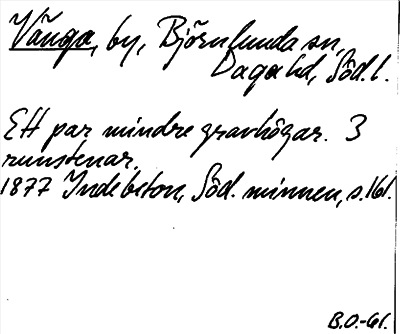 Vånga, by, Björnlunda sn,
Daga hd, Söd. l.
Ett par mindre gravhögar. 3
runstenar.
1877 Indebetou, Söd. minnen, s. 161.
B.O.-61.